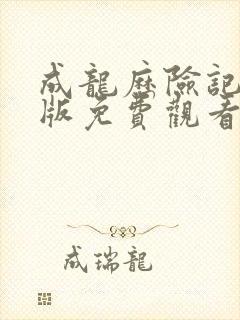 成龍歷險記
版免費觀看
成瑞龍